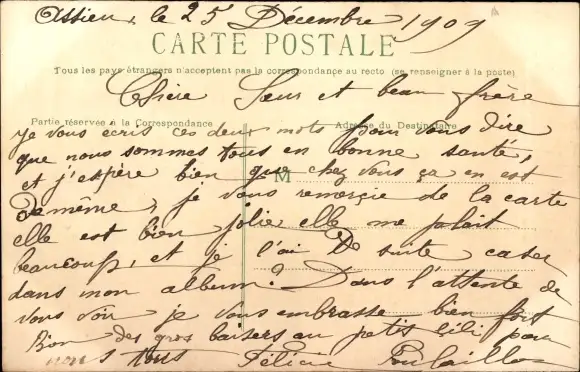 Assieu, le 25 Décembre 1909
CARTE POSTALE
Tous les pays étrangers n'acceptent pas la correspondance au recto (se renseigner à la poste)
Chère Sœur et beau frère
Partie réservée à la Correspondance
Adresse du Destinataire
je vous écris ces deux mots pour vous dire
que nous sommes tous en bonne santé,
et j'espère bien que chez vous ça en est
M
de même, je vous remercie de la carte
elle est bien jolie elle me plait
beaucoup, et je l'ai De suite caser
dans mon album? Dans l'attente de
vous voir je vous embrasse bien fort
Bien des gros baisers au petit pour
nous tous Félicie